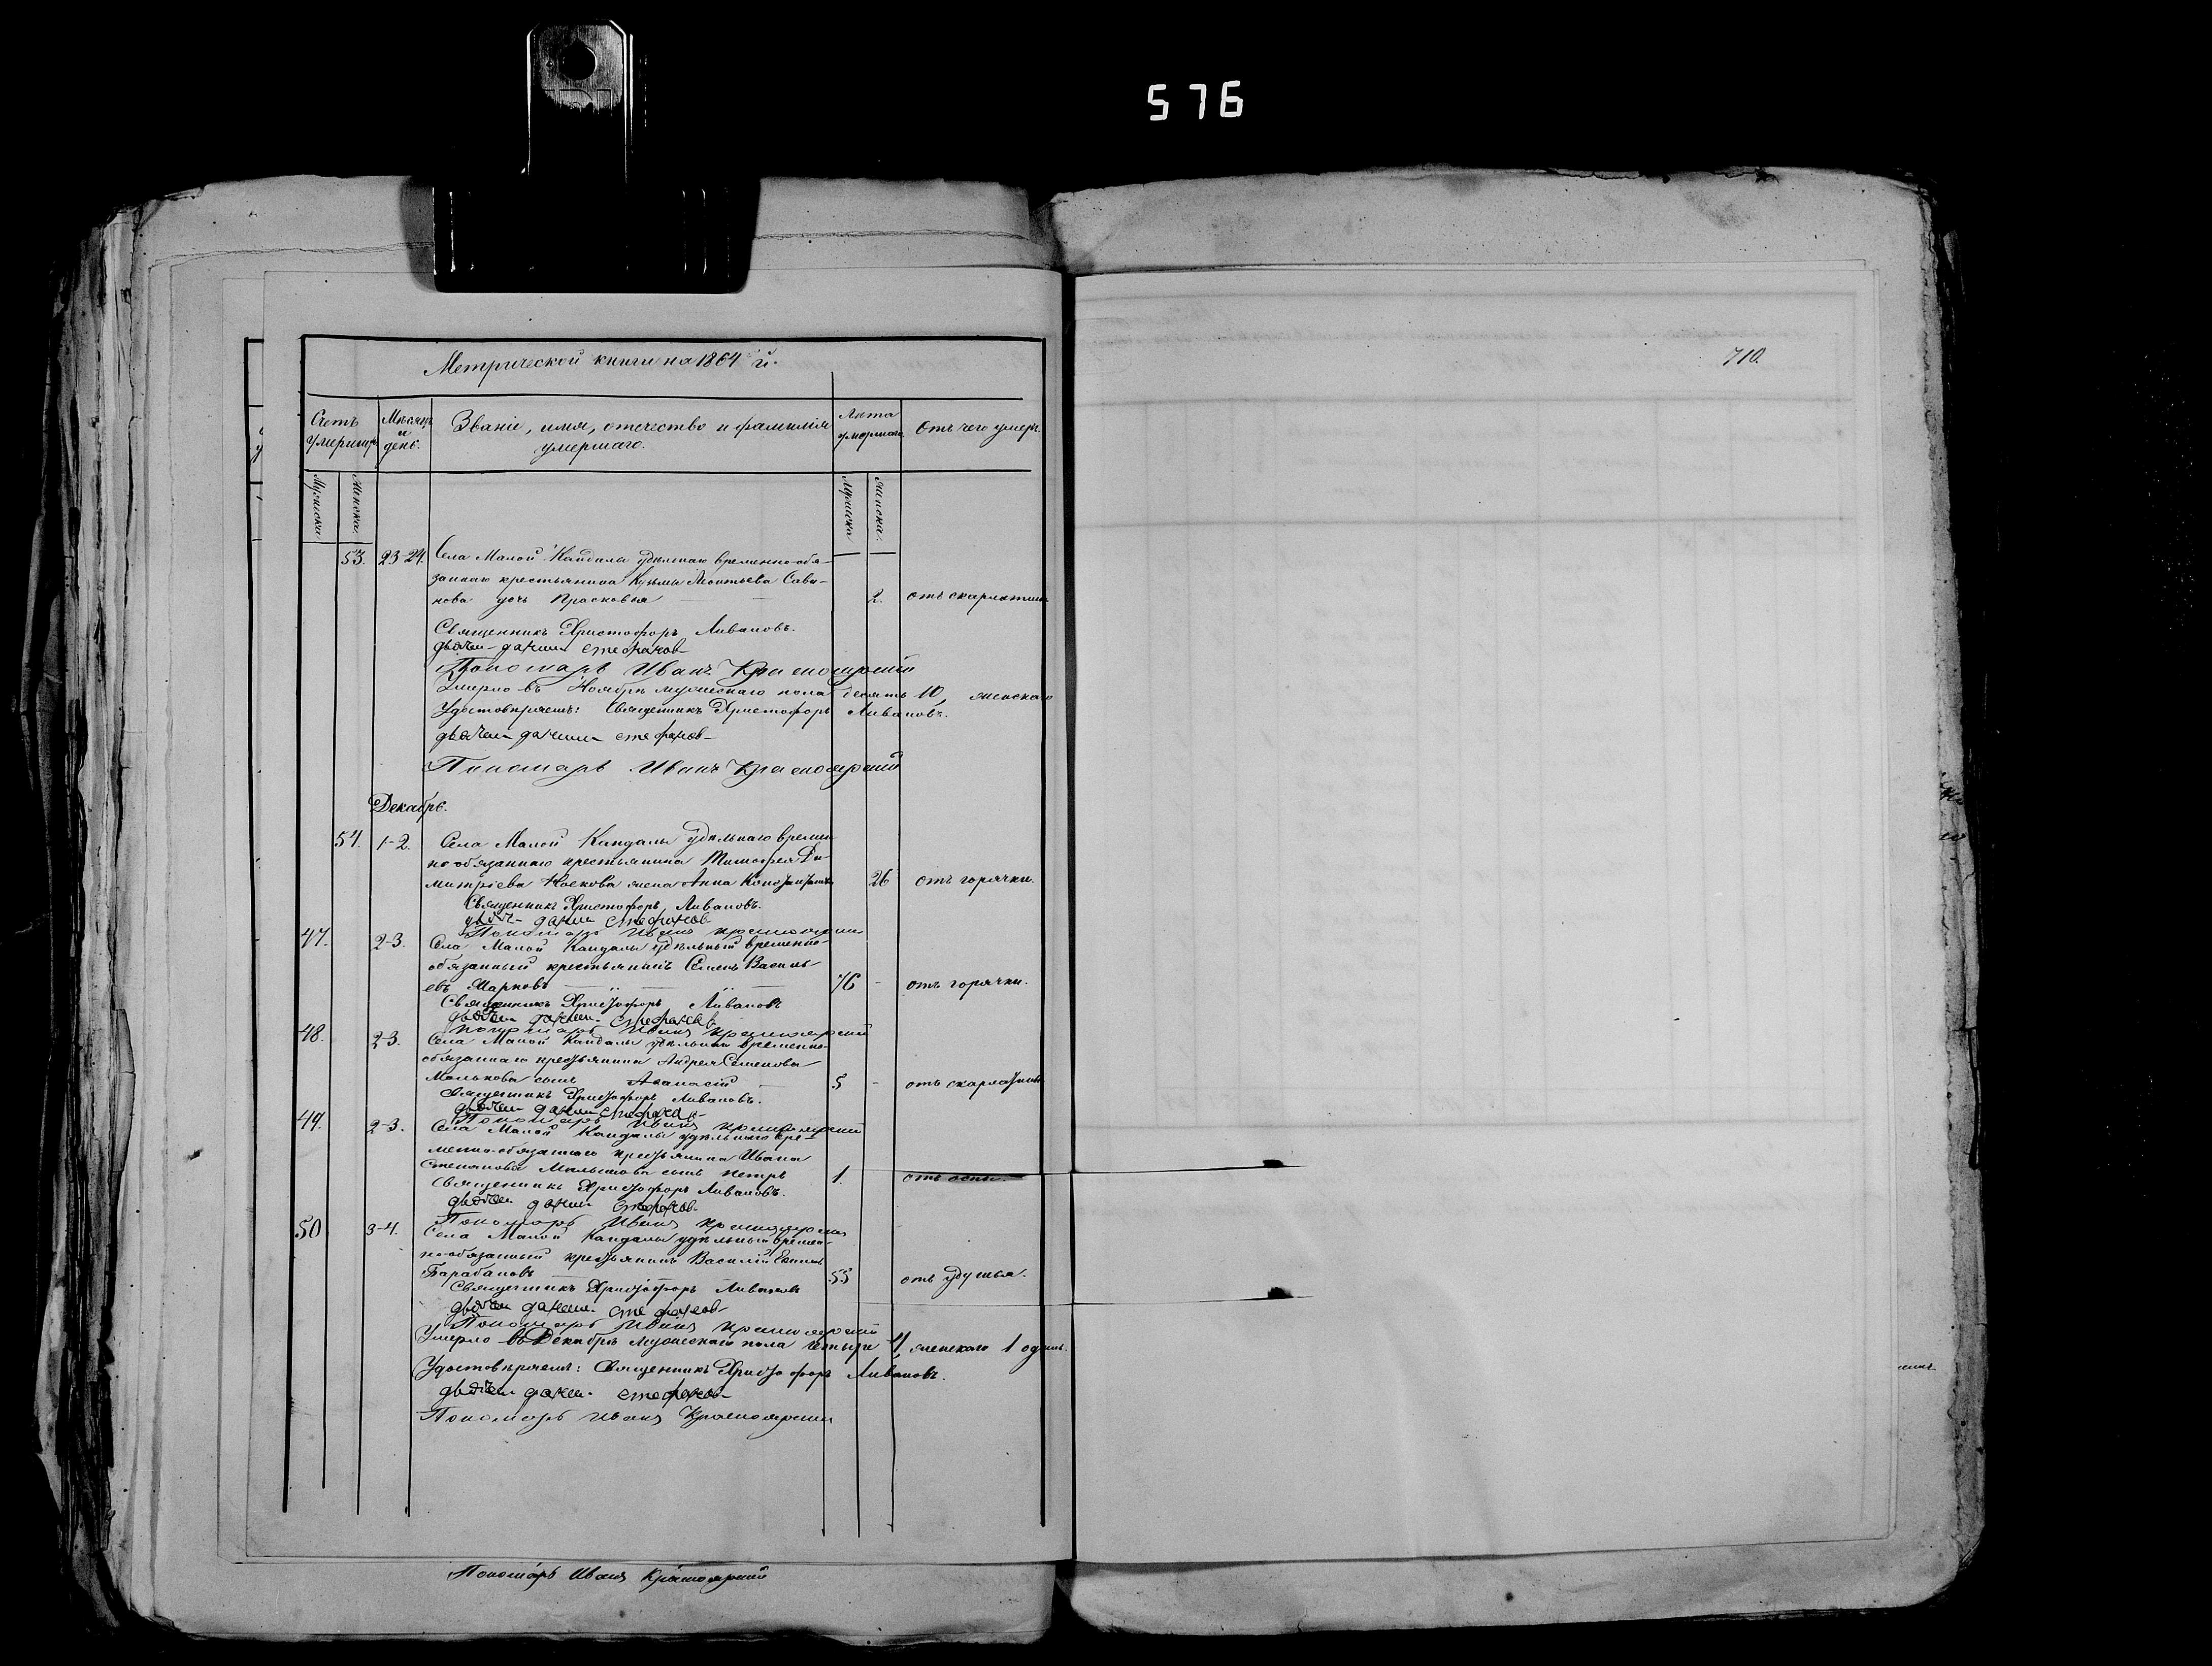 576
710.
Метрической книги на 1864 й.
Счетъ умершихъ
Мѣсяцъ и день.
Званіе, имя, отчество и фамилія умершаго.
Лѣта умершаго
Отъ чего умеръ.
Мужска
Женска.
Мужска
Женска.
53. 23-24. Села Малой Кандалы удѣльнаго временно-обя-
заннаго крестьянина Кузьмы Леонтьева Сави-
нова дочь Прасковья 2. отъ скарлатины
Священникъ Христофоръ Ливановъ.
Дьячек данил стефанов
Пономарь Иванъ Красноярскій
Умерло въ Ноябрѣ мужескаго пола десять 10, женскаго
Удостовѣряемъ: Священникъ Христофоръ Ливановъ.
дьячек данил стефанов
Пономарь Иванъ Красноярскій
Декабрь.
54. 1-2. Села Малой Кандалы удѣльнаго времен
но обязаннаго крестьянина Тимофея Ди-
митріева жена Анна 26 отъ горячки.
Священникъ Христофоръ Ливановъ.
дьячек данил стефанов
Пономарь Иванъ Красноярскій
47. 2-3. Села Малой Кандалы удѣльный временно-
обязанный крестьянинъ Семенъ Василь
евъ Марковъ 76 - отъ горячки.
Священникъ Христофоръ Ливановъ
дьячек данил стефанов
Пономарь Иванъ Красноярскій
48. 2-3. Села Малой Кандалы удѣльнаго временно-
обязаннаго крестьянина Андрея Семенова
Малькова сынъ Аѳанасій 5 - отъ скарлатины
Священникъ Христофоръ Ливановъ.
дьячек данил стефанов
Пономарь Иванъ Красноярскій
49. 2-3. Села Малой Кандалы удѣльнаго вре-
менно-обязаннаго крестьянина Ивана
Степанова сынъ Петръ 1. отъ оспы.
Священникъ Христофоръ Ливановъ.
дьячек данил стефанов
Пономарь Иванъ Красноярскій
50 3-4. Села Малой Кандалы удѣльный времен-
но-обязанный крестьянинъ Василій
Барабановъ 55 отъ удушья.
Священникъ Христофоръ Ливановъ
дьячек данил стефанов
Пономарь Иванъ Красноярскій
Умерло въ Декабрѣ мужескаго пола четыре 4, женскаго 1 одинъ.
Удостовѣряемъ: Священникъ Христофоръ Ливановъ.
дьячек данил стефанов
Пономарь Иванъ Красноярскій
Пономарь Иванъ Красноярскій